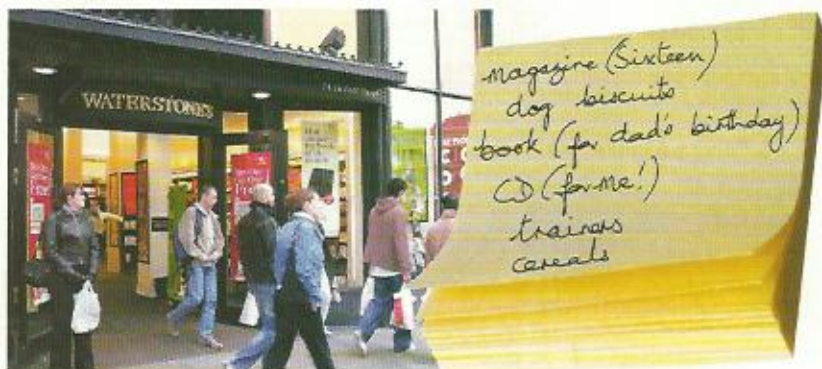 WATERSTONE'S
magazine (Sixteen)
dog biscuits
book (for dad's birthday)
CD (for me!)
trainers
cereals